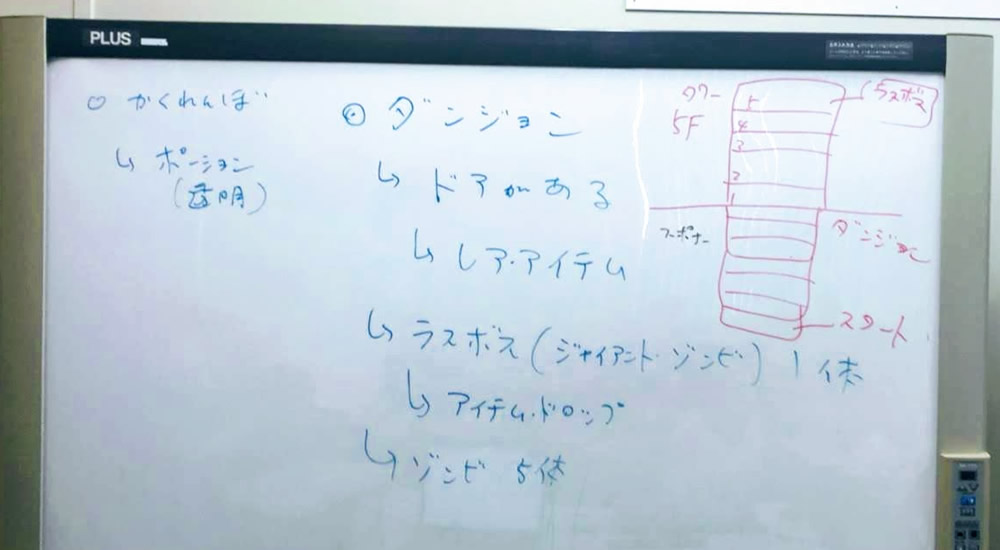 PLUS
○ かくれんぼ
↳ ポーション
(透明)
◎ ダンジョン
↳ ドアがある
↳ レア・アイテム
↳ ラスボス(ジャイアント・ゾンビ) 1体
↳ アイテム・ドロップ
↳ ゾンビ 5体
タワー
5F
5
4
3
2
1
ラスボス
スポナー
ダンジョン
スタート